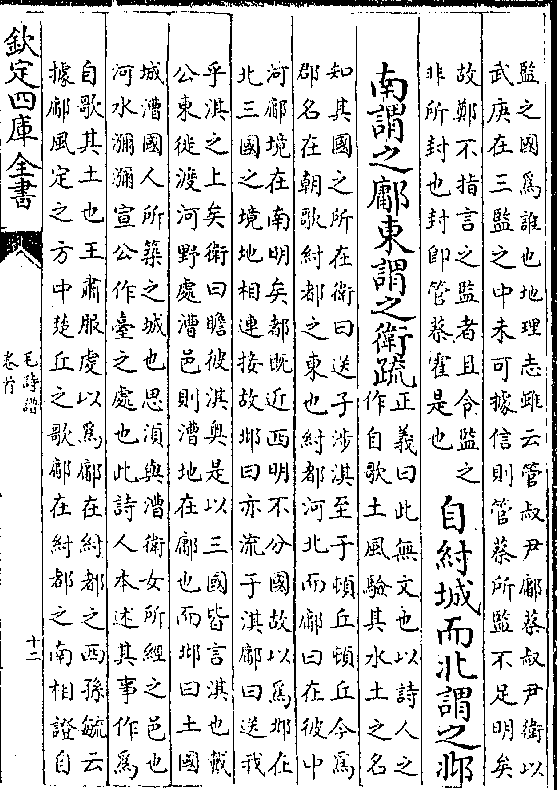 監之國為誰也地理志雖云管叔尹鄘蔡叔尹衛以
武庚在三監之中未可據信則管蔡所監不足明矣
故鄭不指言之監者且令監之
非所封也封即管蔡霍是也
自紂城而北謂之邶
南謂之鄘東謂之衛疏
正義曰此無文也以詩人之
作自歌土風驗其水土之名
如其國之所在衛曰送子涉淇至于頓丘頓丘今為
郡名在朝歌紂都之東也紂都河北而鄘曰在彼中
河鄘境在南明矣都既近西明不分國故以為邶在
北三國之境地相連接故邶曰亦流于淇鄘曰送我
乎淇之上矣衛曰瞻彼淇奥是以三國皆言淇也戴
公東徙渡河野處漕邑則漕地在鄘也而邶曰土國
城漕國人所築之城也思須與漕衛女所經之邑也
河水瀰瀰宣公作臺之處也此詩人本述其事作為
自歌其土也王肅服虔以為鄘在紂都之西孫毓云
據鄘風定之方中楚丘之歌鄘在紂都之南相證自
欽定四庫全書
毛詩譜
卷首
十二